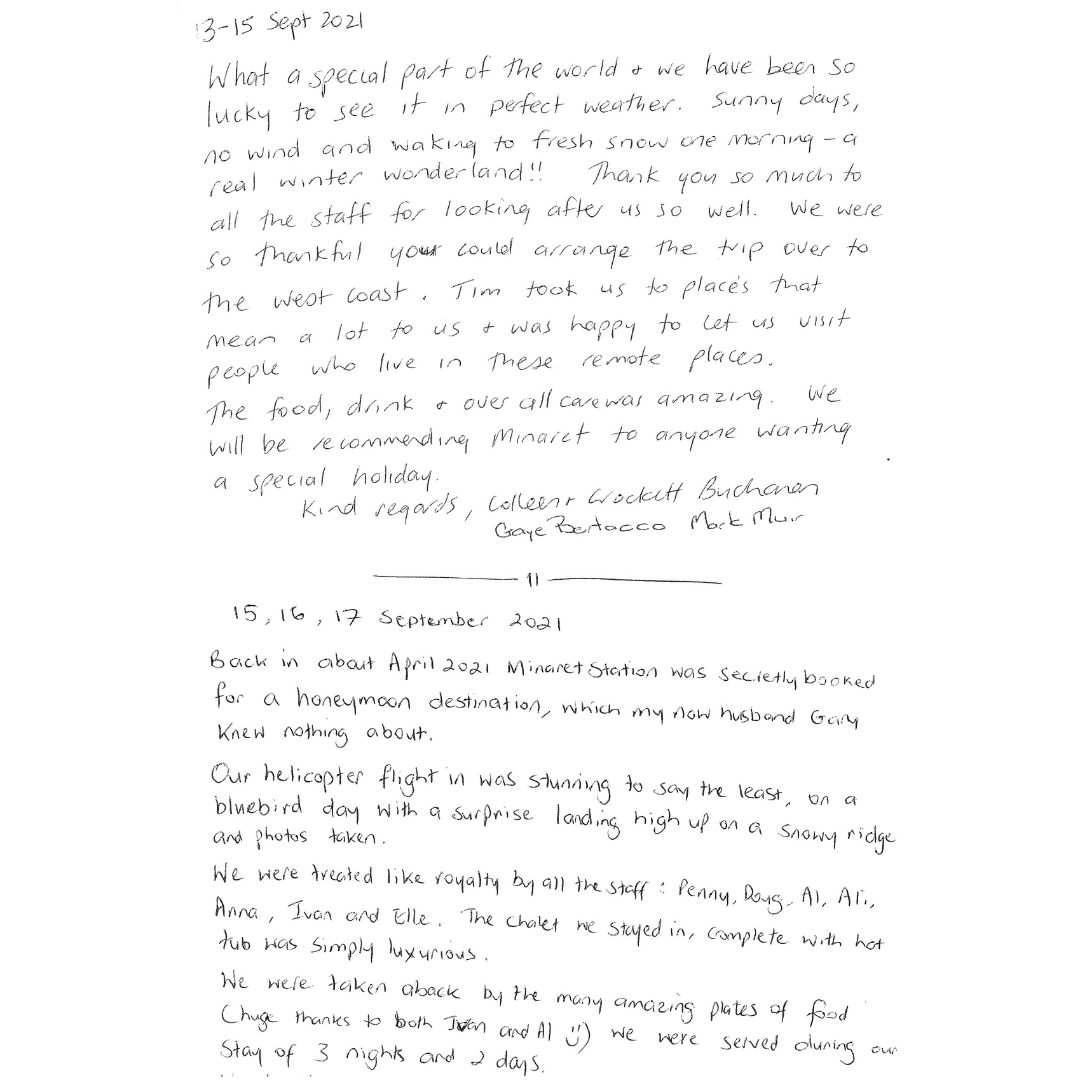 13-15 Sept 2021
What a special part of the world & we have been so
lucky to see it in perfect weather. Sunny days,
no wind and waking to fresh snow one morning - a
real winter wonderland!! Thank you so much to
all the staff for looking after us so well. We were
so thankful you could arrange the trip over to
the west coast. Tim took us to places that
mean a lot to us & was happy to let us visit
people who live in these remote places.
The food, drink & over all care was amazing. We
will be recommending Minaret to anyone wanting
a special holiday.
Kind regards, Colleen & Crockett Buchanan
Gaye Bertacco Mark Muir
11
15, 16, 17 September 2021
Back in about April 2021 Minaret Station was secretly booked
for a honeymoon destination, which my now husband Gary
knew nothing about.
Our helicopter flight in was stunning to say the least, on a
bluebird day with a surprise landing high up on a snowy ridge
and photos taken.
We were treated like royalty by all the staff: Penny, Doug, Al, Ali,
Anna, Ivan and Elle. The chalet we stayed in, complete with hot
tub was simply luxurious.
We were taken aback by the many amazing plates of food
(huge thanks to both Ivan and Al :)) we were served during our
stay of 3 nights and 2 days.